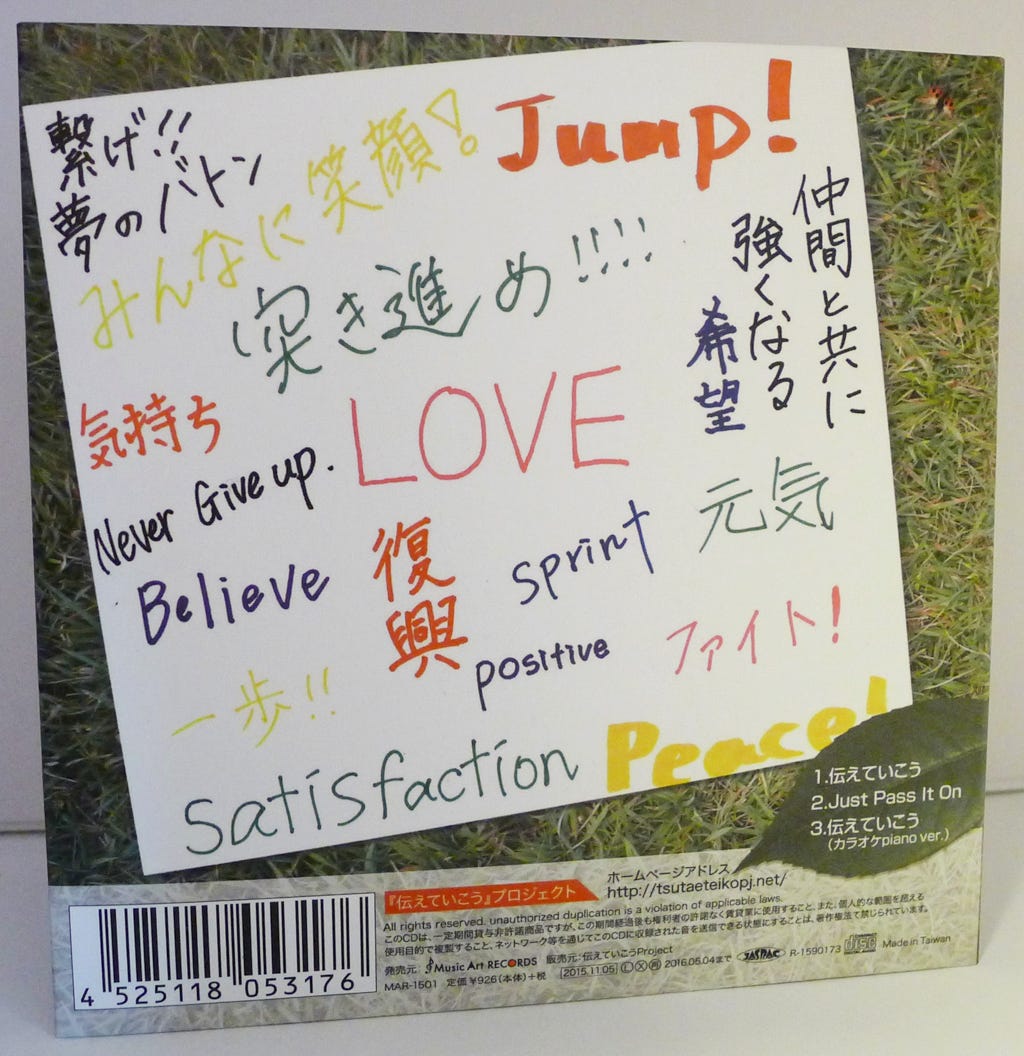 繋げ!!
夢のバトン
みんなに笑顔!
Jump!
突き進め!!!!
仲間と共に
強くなる
希望
気持ち
LOVE
Never Give up.
元気
Believe
復興
sprint
positive
ファイト!
一歩!!
satisfaction
Peace!
1.伝えていこう
2.Just Pass It On
3.伝えていこう
(カラオケpiano ver.)
『伝えていこう』プロジェクト
ホームページアドレス
http://tsutaeteikopj.net/
All rights reserved. unauthorized duplication is a violation of applicable laws.
このCDは、一定期間貸与非許諾商品ですが、この期間経過後も権利者の許諾なく賃貸業に使用すること、また、個人的な範囲を超える
使用目的で複製すること、ネットワーク等を通じてこのCDに収録された音を送信できる状態にすることは、著作権法で禁じられています。
発売元: Music Art RECORDS 販売元:伝えていこうProject
MAR-1501 定価¥926(本体)+税 2015.11.05 Ⓛ Ⓧ 2016.05.04まで JASRAC R-1590173 COMPACT disc Made in Taiwan
4 525118 053176